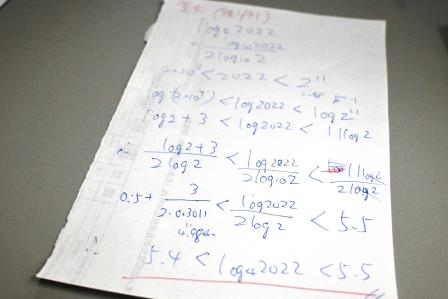 log₄2022
= log₁₀2022 / 2log₁₀2
2×10³ < 2022 < 2¹¹
log(2×10³) < log2022 < log2¹¹
log2+3 < log2022 < 11log2
∴ log2+3 / 2log2 < log2022 / 2log₁₀2 < 11log2 / 2log2
0.5+ 3 / 2·0.3011 < log2022 / 2log2 < 5.5
∴ 5.4 < log₄2022 < 5.5